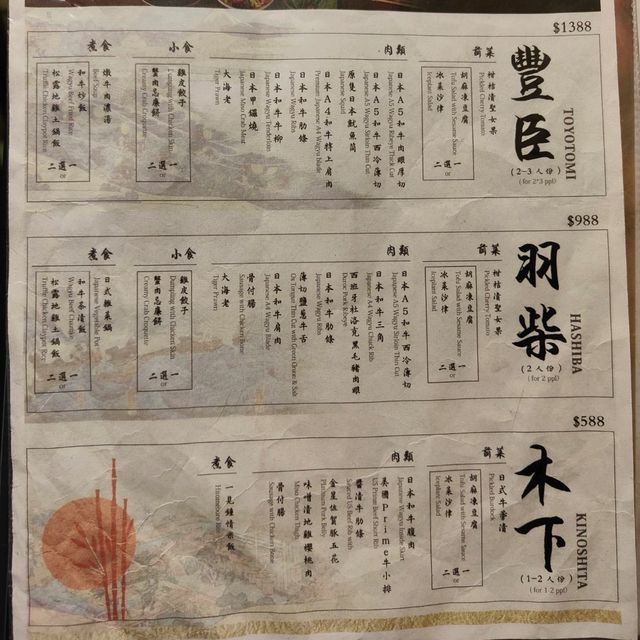 $1388
豐臣
TOYOTOMI
(2-3人份)
(for 2*3 ppl)
前菜
柑桔漬聖女果
Pickled Cherry Tomato
胡麻凍豆腐
Tofu Salad with Sesame Sauce
冰菜沙律
Iceplant Salad
二選一
or
肉類
日本A5和牛肉眼厚切
Japanese A5 Wagyu Ribeye Thick Cut
日本A5和牛西冷薄切
Japanese A5 Wagyu Sirloin Thin Cut
原隻日本魷魚筒
Japanese Squid
日本A4和牛特上肩肉
Premium Japanese A4 Wagyu blade
日本和牛肋條
Japanese Wagyu Ribs
日本和牛柳
Japanese Wagyu Tenderloin
日本甲羅燒
Japanese Miso Crab Meat
大海老
Tiger Prawn
小食
雞皮餃子
Dumpling with Chicken Skin
蟹肉忌廉餅
Creamy Crab Croquette
二選一
or
煮食
燉牛肉濃湯
Beef Soup
和牛炒飯
Wagyu Beef Fried Rice
松露地雞土鍋飯
Truffle Chicken Claypot Rice
二選一
or
$988
羽柴
HASHIBA
(2人份)
(for 2 ppl)
前菜
柑桔漬聖女果
Pickled Cherry Tomato
胡麻凍豆腐
Tofu Salad with Sesame Sauce
冰菜沙律
Iceplant Salad
二選一
or
肉類
日本A5和牛西冷薄切
Japanese A5 Wagyu Sirloin Thin Cut
日本和牛三角
Japanese A4 Wagyu Chuck Rib
西班牙杜洛克黑毛豬肉眼
Duroc Pork Ribeye
日本和牛肋條
Japanese Wagyu Ribs
薄切鹽蔥牛舌
Ox Tongue Thin Cut with Green Onion & Salt
日本和牛肩肉
Japanese A4 Wagyu Blade
骨付腸
Sausage with Chicken Bone
大海老
Tiger Prawn
小食
雞皮餃子
Dumpling with Chicken Skin
蟹肉忌廉餅
Creamy Crab Croquette
二選一
or
煮食
日式雜菜鍋
Japanese Vegetable Pot
和牛茶漬飯
Wagyu Beef Chazuke
松露地雞土鍋飯
Truffle Chicken Claypot Rice
二選一
or
$588
木下
KINOSHITA
(1-2人份)
(for 1-2 ppl)
前菜
日式牛蒡漬
Pickled Burdock
胡麻凍豆腐
Tofu Salad with Sesame Sauce
冰菜沙律
Iceplant Salad
二選一
or
肉類
日本和牛腹肉
Japanese Wagyu Inside Skirt
美國Prime牛小排
US Prime Beef Short Rib
醬漬牛肋條
金星佐賀豚五花
Platinum Pork Belly
味噌漬地雞櫻桃肉
Miso Chicken Thigh
骨付腸
Sausage with Chicken Bone
煮食
一見鍾情米飯
Hitomebore Rice